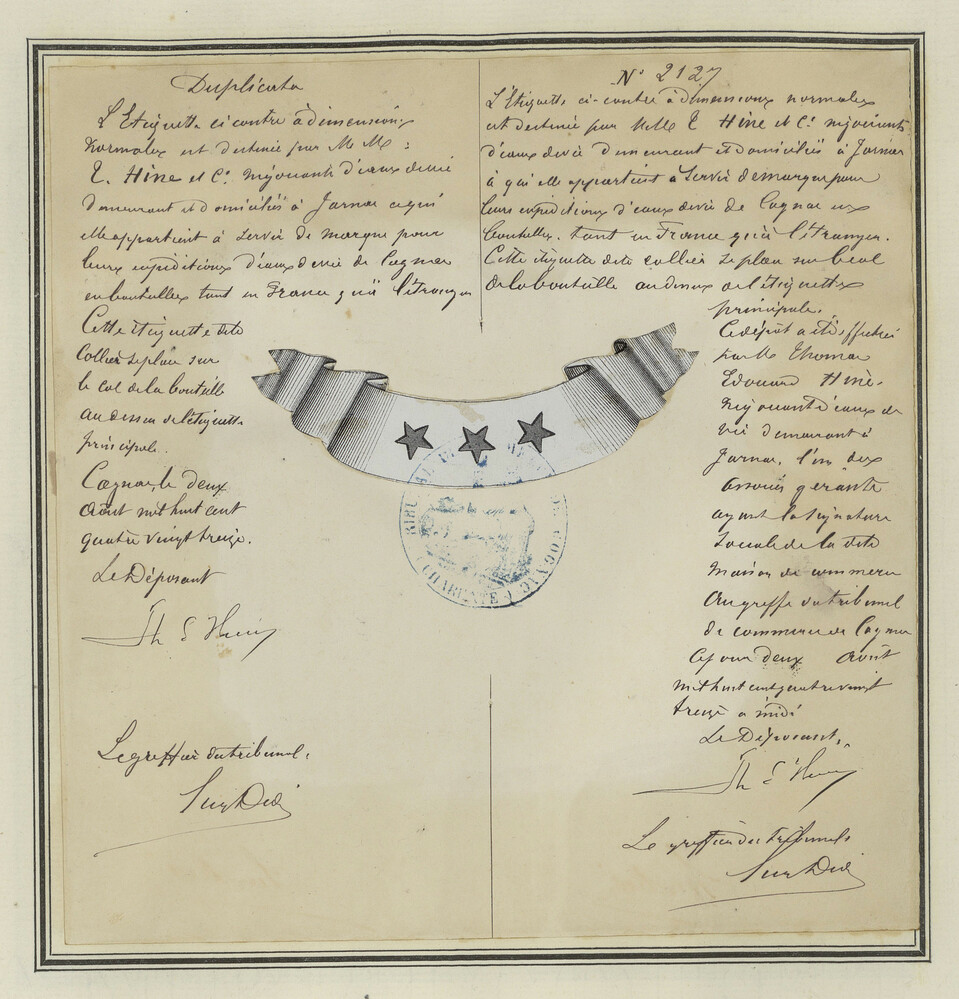 Duplicata
L'Etiquette ci contre à dimensions
normales est destinée par M M:
T. Hine et Cie. Négociants d'eaux de vie
demeurant et domiciliés à Jarnac a qui
elle appartient à servir de marque pour
leurs expéditions d'eaux de vie de Cognac
en bouteilles tant en France qu'à l'étranger
Cette étiquette dite
Collier se place sur
le col de la bouteille
au dessus de l'étiquette
principale.
Cognac, le deux
Août mil huit cent
quatre vingt treize.
Le Déposant
Th E Hine
Le greffier du tribunal.
N° 2127
L'Etiquette ci-contre à dimensions normales
est destinée par M M T Hine et Cie négociants
d'eaux de vie demeurant et domiciliés à Jarnac
à qui elle appartient à servir de marque pour
leurs expéditions d'eaux de vie de Cognac en
bouteilles, tant en France qu'à l'étranger.
Cette étiquette dite collier se place sur le col
de la bouteille au dessus de l'étiquette
principale.
Ce dépôt a été effectué
par M Thomas
Edouard Hine.
Négociant d'eaux de
vie demeurant à
Jarnac, l'un des
Associés gérants
ayant la signature
sociale de la dite
maison de commerce
Au greffe du tribunal
de commerce de Cognac
Ce jour deux Août
mil huit cent quatre vingt
treize à midi
Le Déposant.
Th E Hine
Le greffier du tribunal
TRIBUNAL DE COGNAC (CHARENTE)